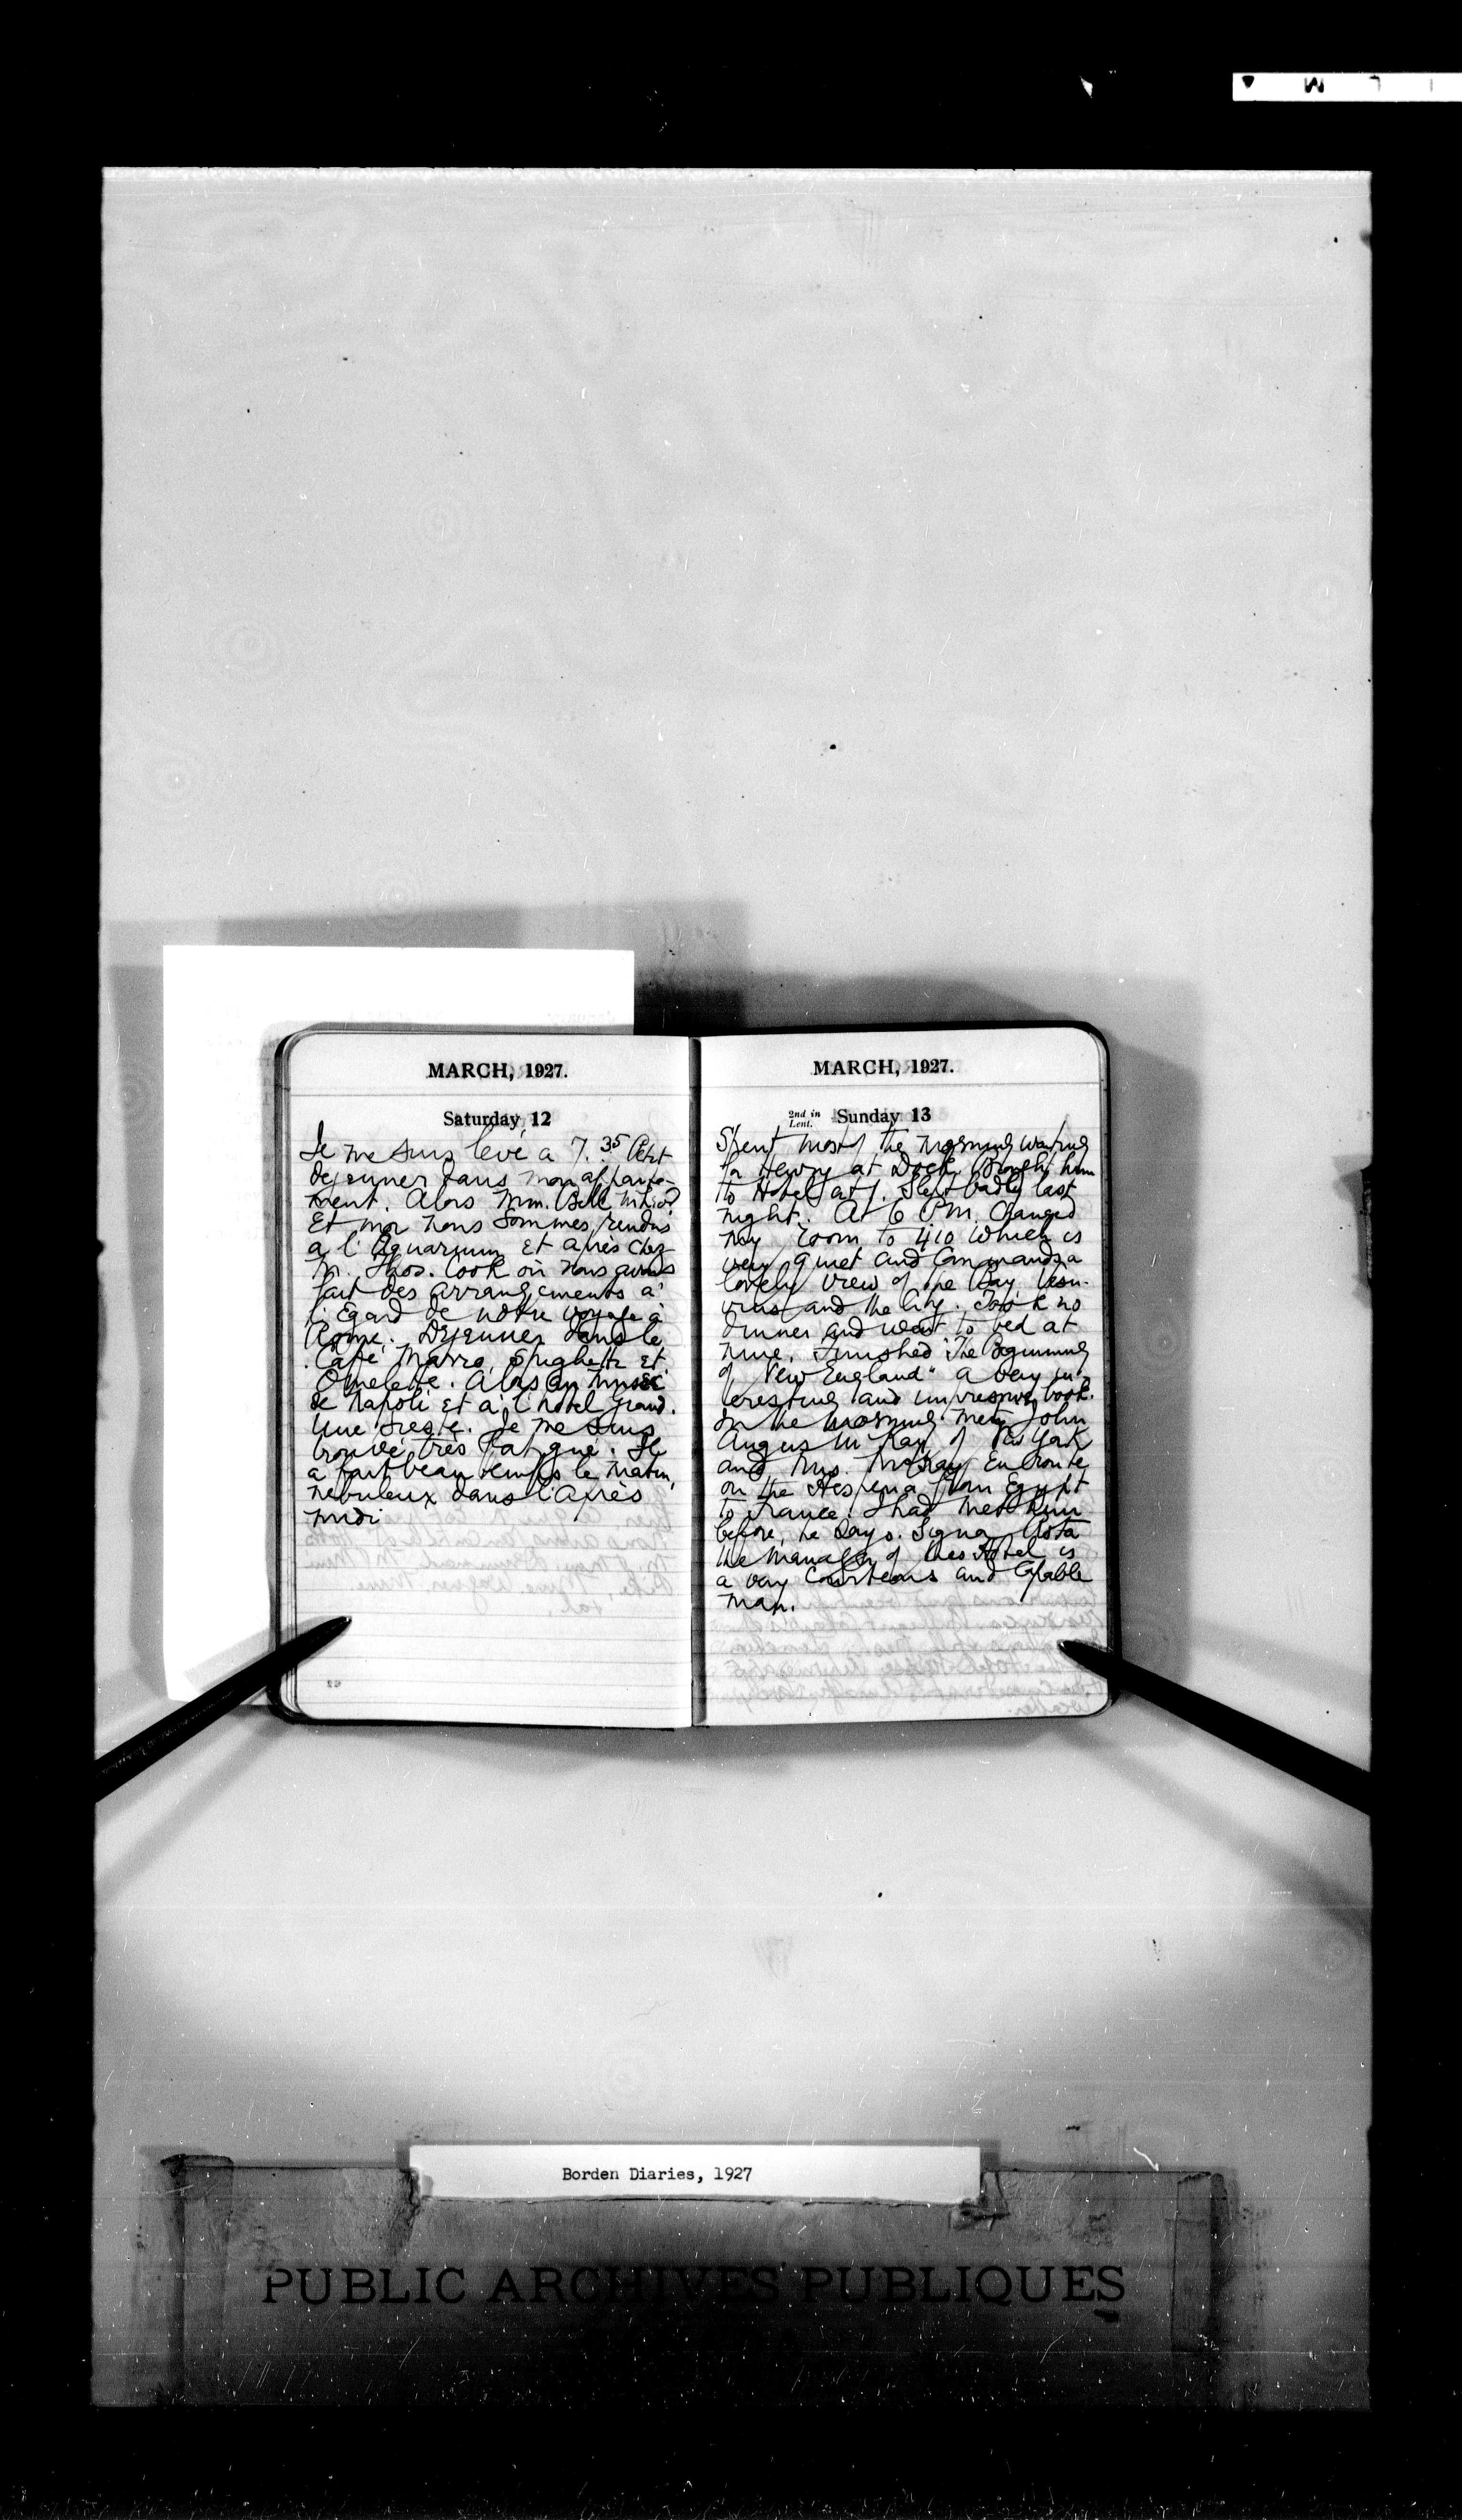 MARCH, 1927.
Saturday 12
Je me suis levé a 7.35 Petit
dejeuner dans mon apparte-
ment. Alors Mm. Bell
Et moi nous sommes rendus
a l'Aquarium Et après chez
M. Thos. Cook où nous avons
fait des arrangements a
l'Egard de notre voyage à
Rome. Dejeuner dans le
Café Marro, Spughetti et
Omelette. Alors au musée
de Napoli et a l'hotel Grand.
Une sieste. Je me suis
trouvé très fatigué. Il
a fait beau temps le matin,
nebuleux dans l'après
midi
MARCH, 1927.
2nd in Lent. Sunday 13
Spent most of the morning waiting
for Henry at Dock. Brought him
to Hotel at 1. Slept badly last
night. At 6 P.M. Changed
my room to 410 which is
very quiet and commands a
lovely view of the Bay, Vesu-
vius and the City. Took no
dinner and went to bed at
nine. Finished "The Beginning
of New England" a very in-
teresting and impressive book.
In the morning met John
Angus McKay of New York
and Mrs. McKay En route
on the Hesperia from Egypt
to France. I had met him
before, he says. Signor Rosta
the manager of this Hotel is
a very Courteous and Capable
man.
Borden Diaries, 1927
PUBLIC ARCHIVES PUBLIQUES